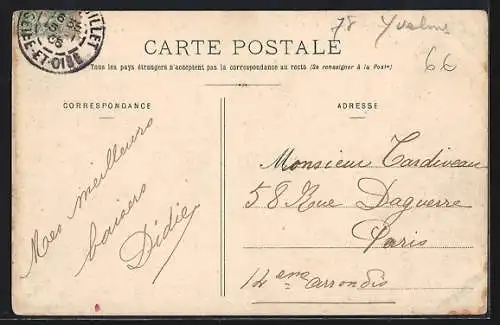 78 Yvelines
66
CARTE POSTALE
Tous les pays étrangers n'acceptent pas la correspondance au recto (Se renseigner à la Poste)
CORRESPONDANCE
ADRESSE
Mes meilleurs
baisers
Didie
Monsieur Tardiveau
58 Rue Daguerre
Paris
14 eme arrondis
ET-OISE